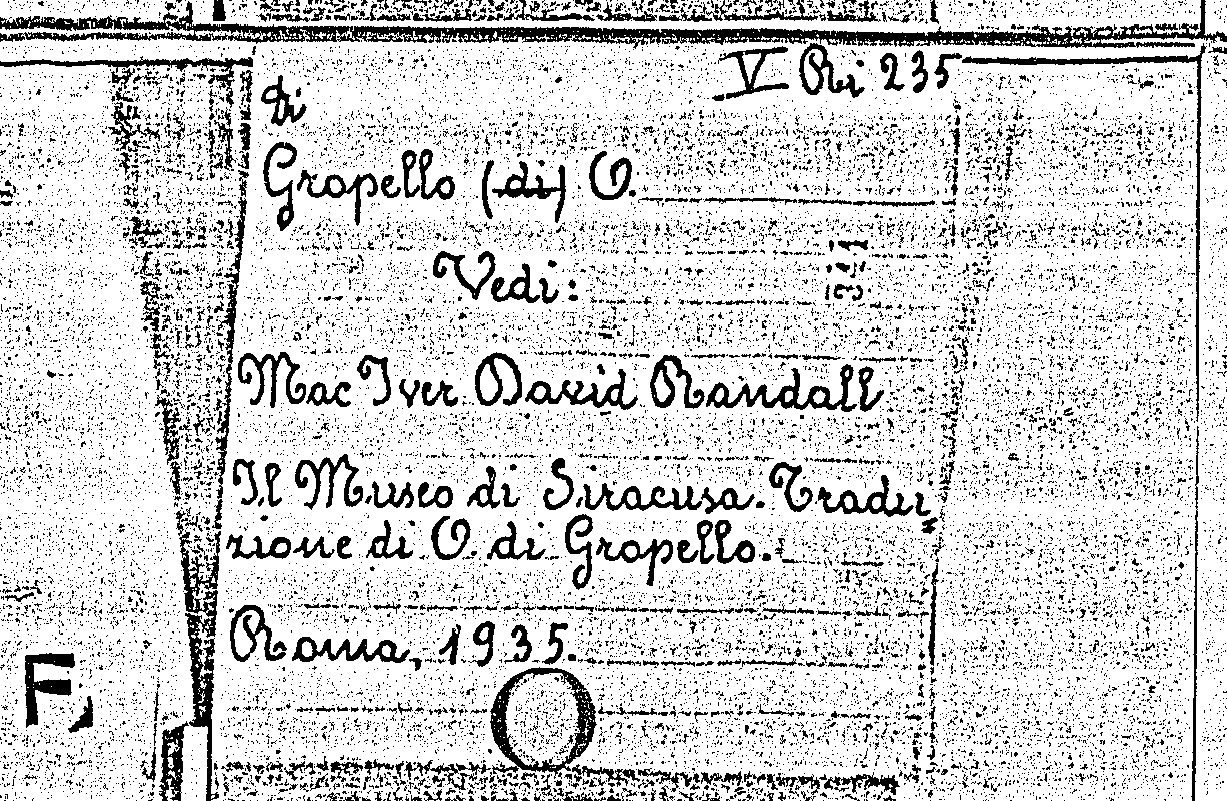 V Ri 235
Di
Gropello (di) O.
Vedi:
321
Mac Iver David Randall
Il Museo di Siracusa. Tradu
zione di O. di Gropello.
Roma, 1935.